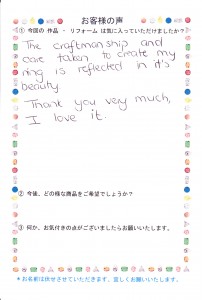 お客様の声
① 今回の 作品 ・ リフォーム は気に入っていただけましたか?
The craftmanship and
care taken to create my
ring is reflected in it's
beauty.
Thank you very much,
I love it.
② 今後、どの様な商品をご希望でしょうか?
③ 何か、お気付きの点がございましたらお願いいたします。
＊お名前は伏せさせていただきます。宜しくお願いいたします。